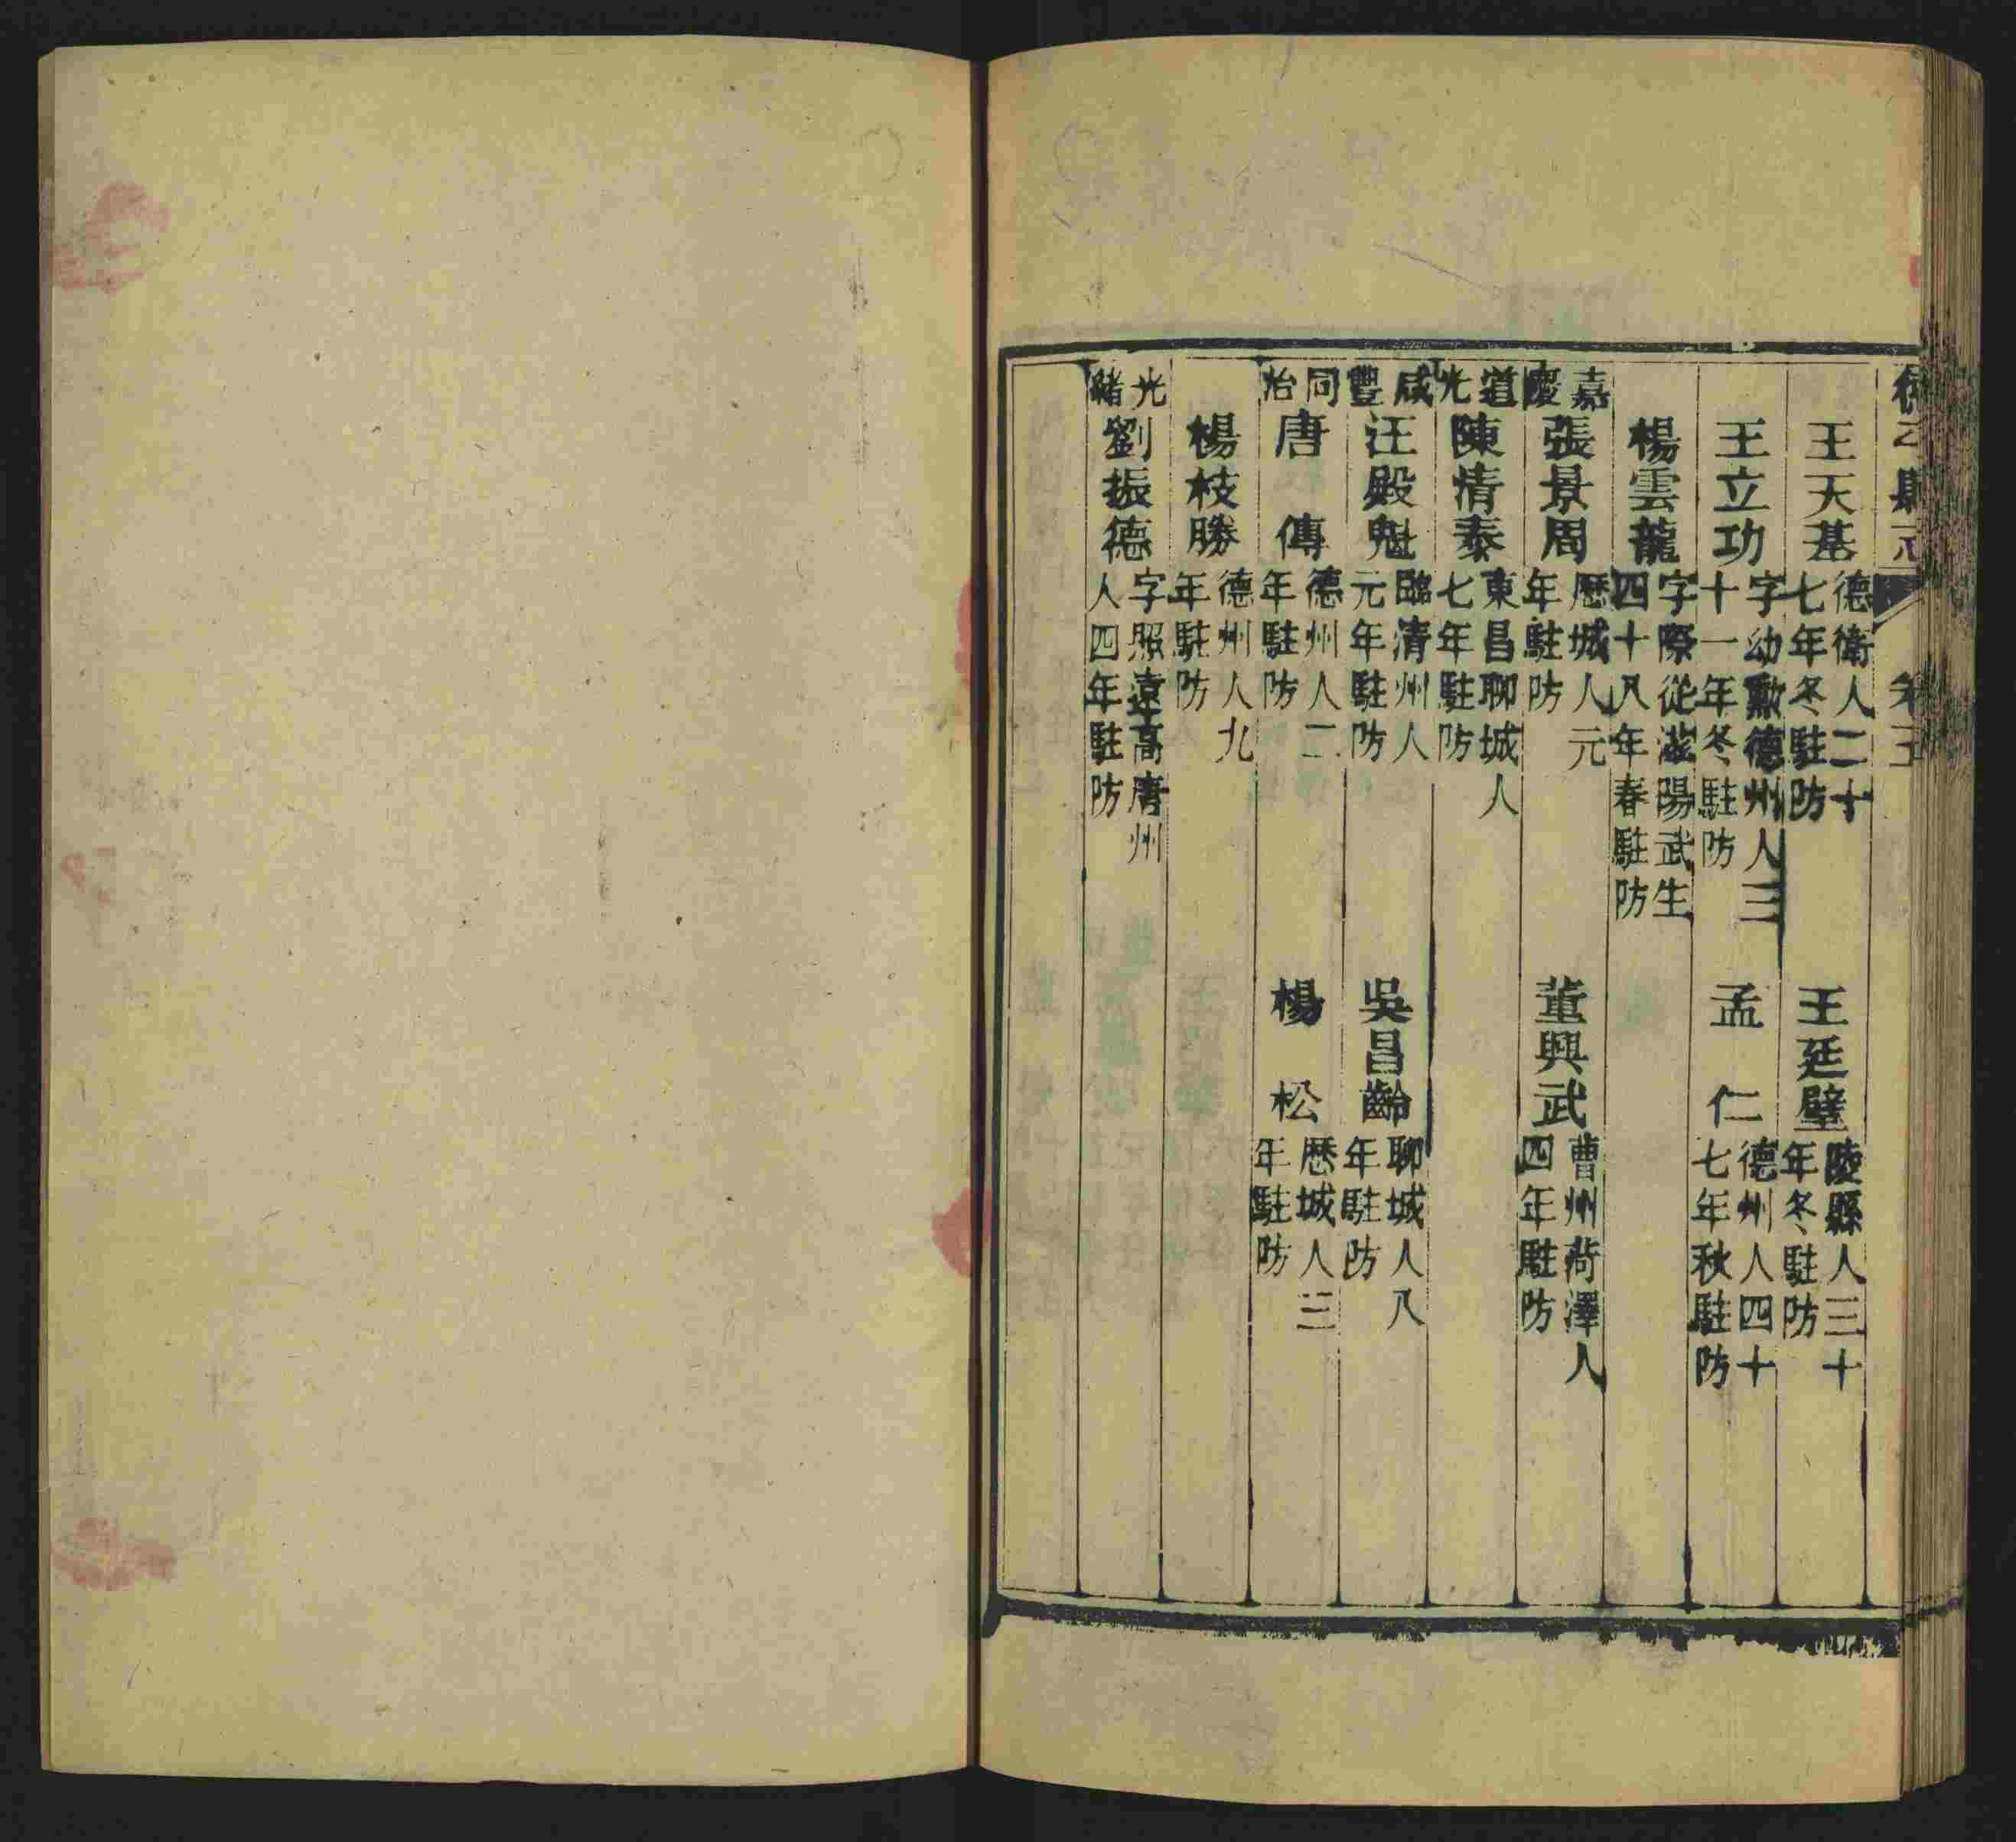 王天基 德衛人二十七年冬駐防 王廷璧 陵縣人三十年冬駐防
王立功 字幼勳德州人三十一年冬駐防 孟仁 德州人四十七年秋駐防
楊雲龍 字際從滋陽武生四十八年春駐防
嘉慶 張景周 歷城人元年駐防 董興武 曹州菏澤人四年駐防
道光 陳情泰 東昌聊城人七年駐防
咸豐 汪殿魁 臨清州人元年駐防 吳昌齡 聊城人八年駐防
同治 唐傳 德州人二年駐防 楊松 歷城人三年駐防
楊枝勝 德州人九年駐防
光緒 劉振德 字照遠高唐州人四年駐防